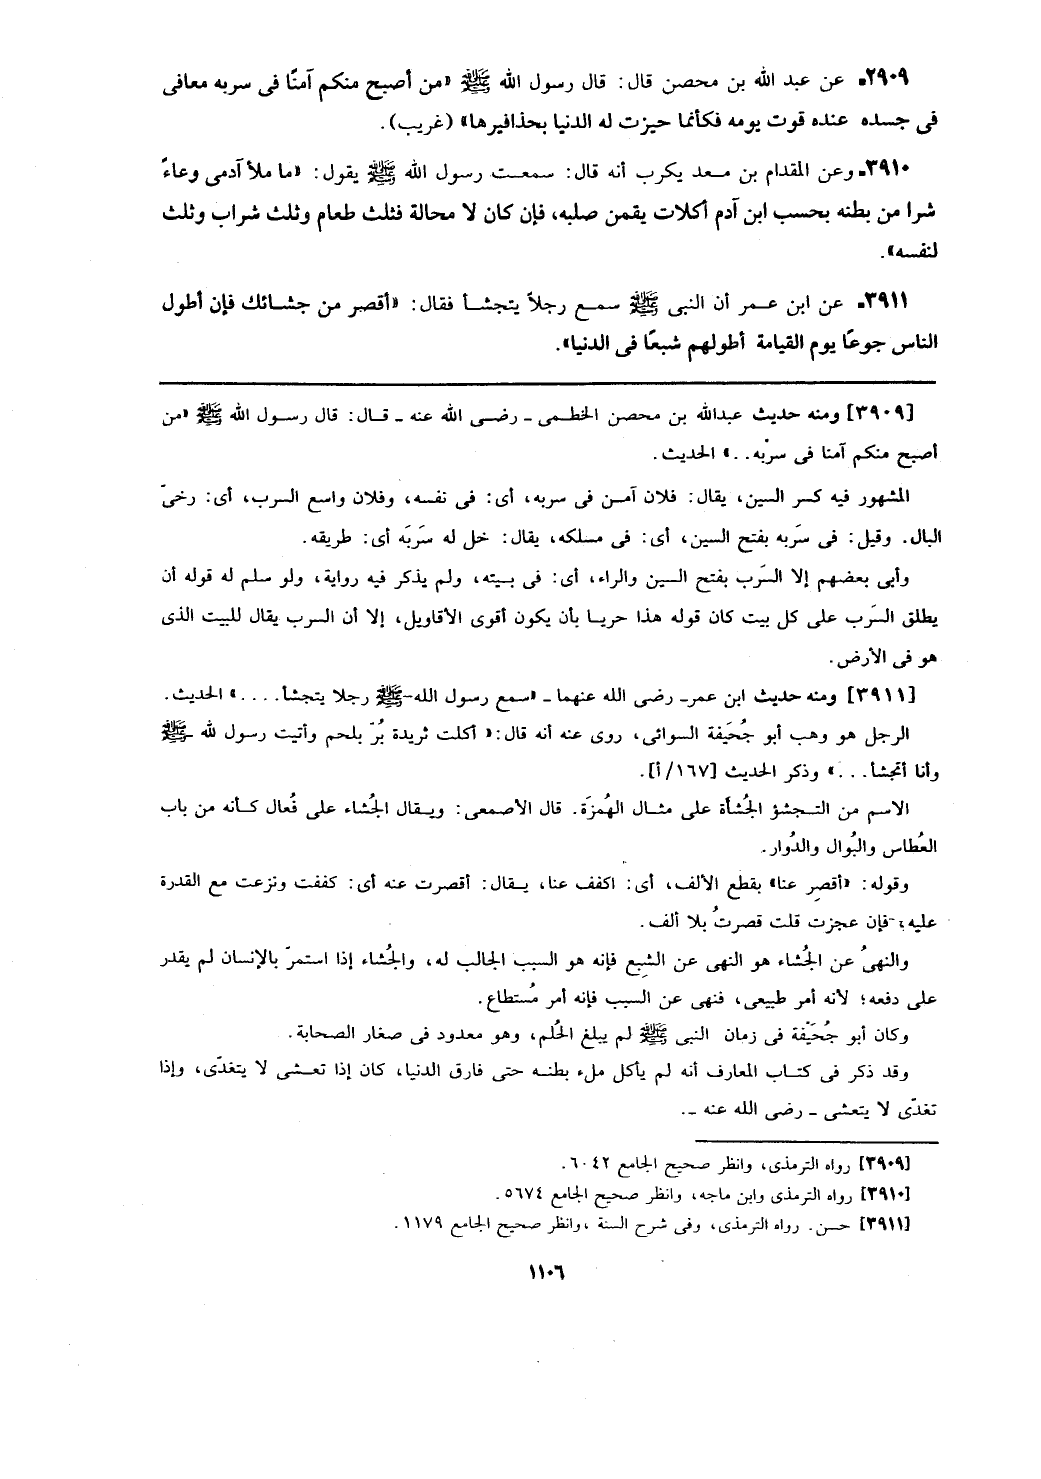 ٢٩٠٩ـ عن عبد الله بن محصن قال: قال رسول الله ﷺ «من أصبح منكم آمنًا فى سربه معافى
فى جسده عنده قوت يومه فكأنما حيزت له الدنيا بحذافيرها» (غريب).
٣٩١٠ـ وعن المقدام بن معد يكرب أنه قال: سمعت رسول الله ﷺ يقول: «ما ملأ آدمى وعاءً
شرا من بطنه بحسب ابن آدم أكلات يقمن صلبه، فإن كان لا محالة فثلث طعام وثلث شراب وثلث
لنفسه».
٣٩١١ـ عن ابن عمر أن النبى ﷺ سمع رجلاً يتجشأ فقال: «أقصر من جشائك فإن أطول
الناس جوعًا يوم القيامة أطولهم شبعًا فى الدنيا».
[٣٩٠٩] ومنه حديث عبدالله بن محصن الخطمى ـ رضى الله عنه ـ قال: قال رسول الله ﷺ «من
أصبح منكم آمنا فى سرْبه..» الحديث.
المشهور فيه كسر السين، يقال: فلان آمن فى سربه، أى: فى نفسه، وفلان واسع السرب، أى: رخىّ
البال. وقيل: فى سَربه بفتح السين، أى: فى مسلكه، يقال: خل له سَربَه أى: طريقه.
وأبى بعضهم إلا السَرب بفتح السين والراء، أى: فى بيته، ولم يذكر فيه رواية، ولو سلم له قوله أن
يطلق السَرب على كل بيت كان قوله هذا حريا بأن يكون أقوى الأقاويل، إلا أن السرب يقال للبيت الذى
هو فى الأرض.
[٣٩١١] ومنه حديث ابن عمرـ رضى الله عنهما ـ «سمع رسول الله-ﷺ رجلا يتجشأ....» الحديث.
الرجل هو وهب أبو جُحَيفة السوائى، روى عنه أنه قال:« أكلت ثريدة بُرّ بلحم وأتيت رسول لله ـﷺ
وأنا أتجشأ...» وذكر الحديث [١٦٧/أ].
الاسم من التجشؤ الجُشأة على مثال الهُمزَة. قال الأصمعى: ويقال الجُشاء على فُعال كأنه من باب
العُطاس والبُوال والدُوار.
وقوله: «أقصِر عنا» بقطع الألف، أى: اكفف عنا، يقال: أقصرت عنه أى: كففت ونزعت مع القدرة
عليه، فإن عجزت قلت قصرتُ بلا ألف.
والنهىُ عن الجُشاء هو النهى عن الشِبع فإنه هو السبب الجالب له، والجُشاء إذا استمرّ بالإنسان لم يقدر
على دفعه؛ لأنه أمر طبيعى، فنهى عن السبب فإنه أمر مُستطاع.
وكان أبو جُحَيْفة فى زمان النبى ﷺ لم يبلغ الحُلم، وهو معدود فى صغار الصحابة.
وقد ذكر فى كتاب المعارف أنه لم يأكل ملء بطنه حتى فارق الدنيا، كان إذا تعشى لا يتغدّى، وإذا
تغدّى لا يتعشى ـ رضى الله عنه ـ.
[٣٩٠٩] رواه الترمذى، وانظر صحيح الجامع ٦٠٤٢.
[٣٩١٠] رواه الترمذى وابن ماجه، وانظر صحيح الجامع ٥٦٧٤.
[٣٩١١] حسن. رواه الترمذى، وفى شرح السنة ،وانظر صحيح الجامع ١١٧٩.
١١٠٦